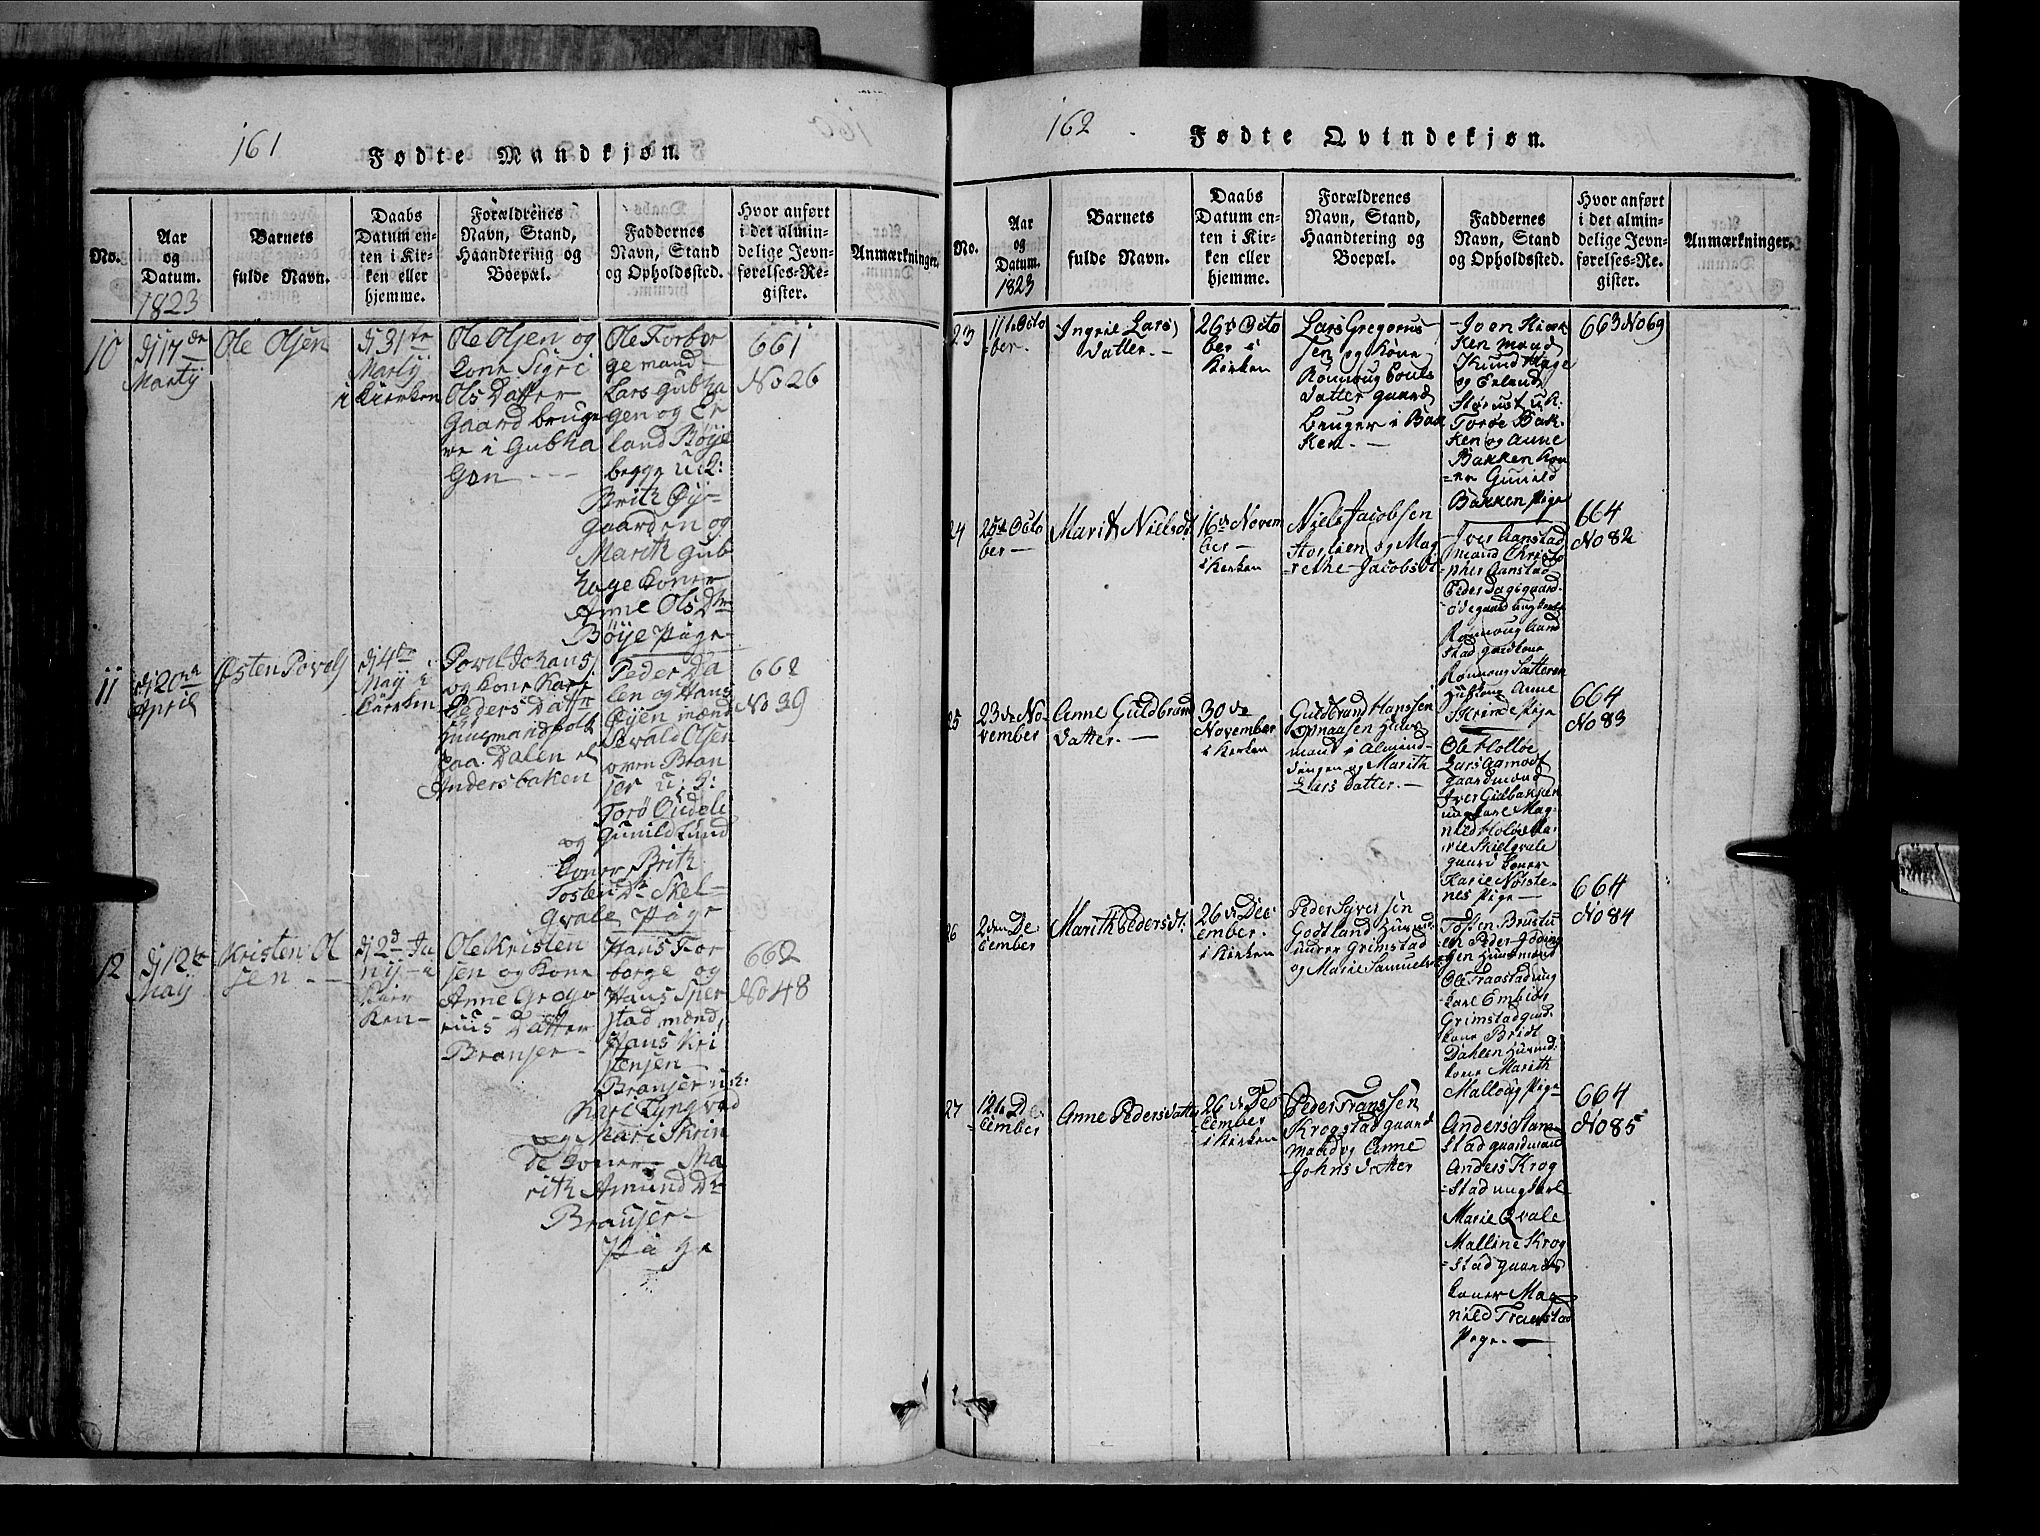 161
Fødte Mandkjøn.
No.
Aar
og
Datum.
1823
Barnets
fulde Navn.
Daabs
Datum en-
ten i Kir-
ken eller
hjemme.
Forældrenes
Navn, Stand,
Haandtering og
Boepæl.
Faddernes
Navn, Stand
og Opholdssted.
Hvor anført
i det almin-
delige Jevn-
førelses-Re-
gister.
Anmærkninger.
10
dj 17de
Martij
Ole Olsen
dj 31te
Martij
i Kierken
Ole Olsen og
Kone Sigri
Ols Datter
Gaard bruge
re i Gubha
Gen
Ole Forbor
ge mand
Lars Gubha
gen og Er
land Böye
begge u: k:
Brith Øy-
gaarden og
Marith Gub
hage Koner
Anne Ols Dtr
Böye Pige
661
No 26
11
dj 20de
April
Østen Povels
dj 4de
Maij i
Kierken
Povel Johans
og Kone Kari
Peders Datter
Huusmandfolk
paa Dalen
Andersbaken
Peder Da
len og Hans
Øyen mænd
Sevald Olsen
Bran
ser u: k:
Torø
og Gunild Lund
Koner Brith
Tosten Dtr Skel-
qvale Pige
662
No 39
12
dj 12te
Maij
Kristen Ol
sen
dj 2d Ju
nij i
Kier
ken
Ole Kristen
sen og Kone
Anne Grego
rius Datter
Branser
Hans For
borge og
Hans Sper
stad mænd
Hans Kri
stensen
Branser u: k:
Kari Lyngved
og Mari Skrin
de Koner Ma
rith Amund Dtr
Branser
Pige
662
No 48
162
Fødte Qvindekjøn.
No.
Aar
og
Datum.
1823
Barnets
fulde Navn.
Daabs
Datum en-
ten i Kir-
ken eller
hjemme.
Forældrenes
Navn, Stand,
Haandtering og
Boepæl.
Faddernes
Navn, Stand
og Opholdssted.
Hvor anført
i det almin-
delige Jevn-
førelses-Re-
gister.
Anmærkninger.
23
11te Octo
ber
Ingrie Lars
datter
26de Octo
ber i
Kirken
Lars Gregorius
sen og Kone
Rønnoug Pouls
datter gaard
bruger i Bak
ken
Joen
ken mand
Knud Hage
og Erland
Størust u: k:
Torøe Bak-
ken og Anne
Bakken Kon
er Gunild
Bakken Pige
663 No 69
24
25de Octo
ber
Marit Nielsdt
16de Novem
ber
i Kirken
Niels Jacobsen
Storlien og Mag
rethe Jacobsdt
Iver Aanstad
mand Christo
pher Aanstad
Peder Dagsgaard
ødegaard ungkarle
Rønnoug Aand
stad gaardkone
Rønnoug Sætteren
Huuskone Anne
Skrinde Pige
664
No 82
25
23de No
vember
Anne Guldbrand
datter
30de
November
i Kirken
Guldbrand Hanssen
Opnaasen Huus
mand i Almend-
dingen og Marith
Lars datter
Ole Holløe
Lars Aamodt
gaardmænd
Iver Gielbaksen
ungkarl Mag-
nild Holøe Ma-
rie Skielqvale
gaard Koner
Karie Nørste-
nes Pige
664
No 83
26
2den De
cember
Marith Pedersdt
26de Dec
ember
i Kirken
Peder Syversen
Godtland Huusmd
under Grimstad
og Marie Samuelsdt
Tosten Brustu
en Peder Jødung-
gen Huusmænd
Ole Fraastad ung
karl Embid
Grimstad gaard
kone Bridt
Dahlen Huusmd
kone Marith
Malloug Pige
664
No 84
27
12te De
cember
Anne Pedersdatter
26de Dec
ember
i Kirken
Peder Franssen
Krogstad gaard
mand og Anne
Johns datter
Anders Stam
stad gaardmand
Anders Krog
stad ungkarl
Marie Qvale
Malline Krog
stad gaards
koner Mag
nild Framstad
Pige
664
No 85